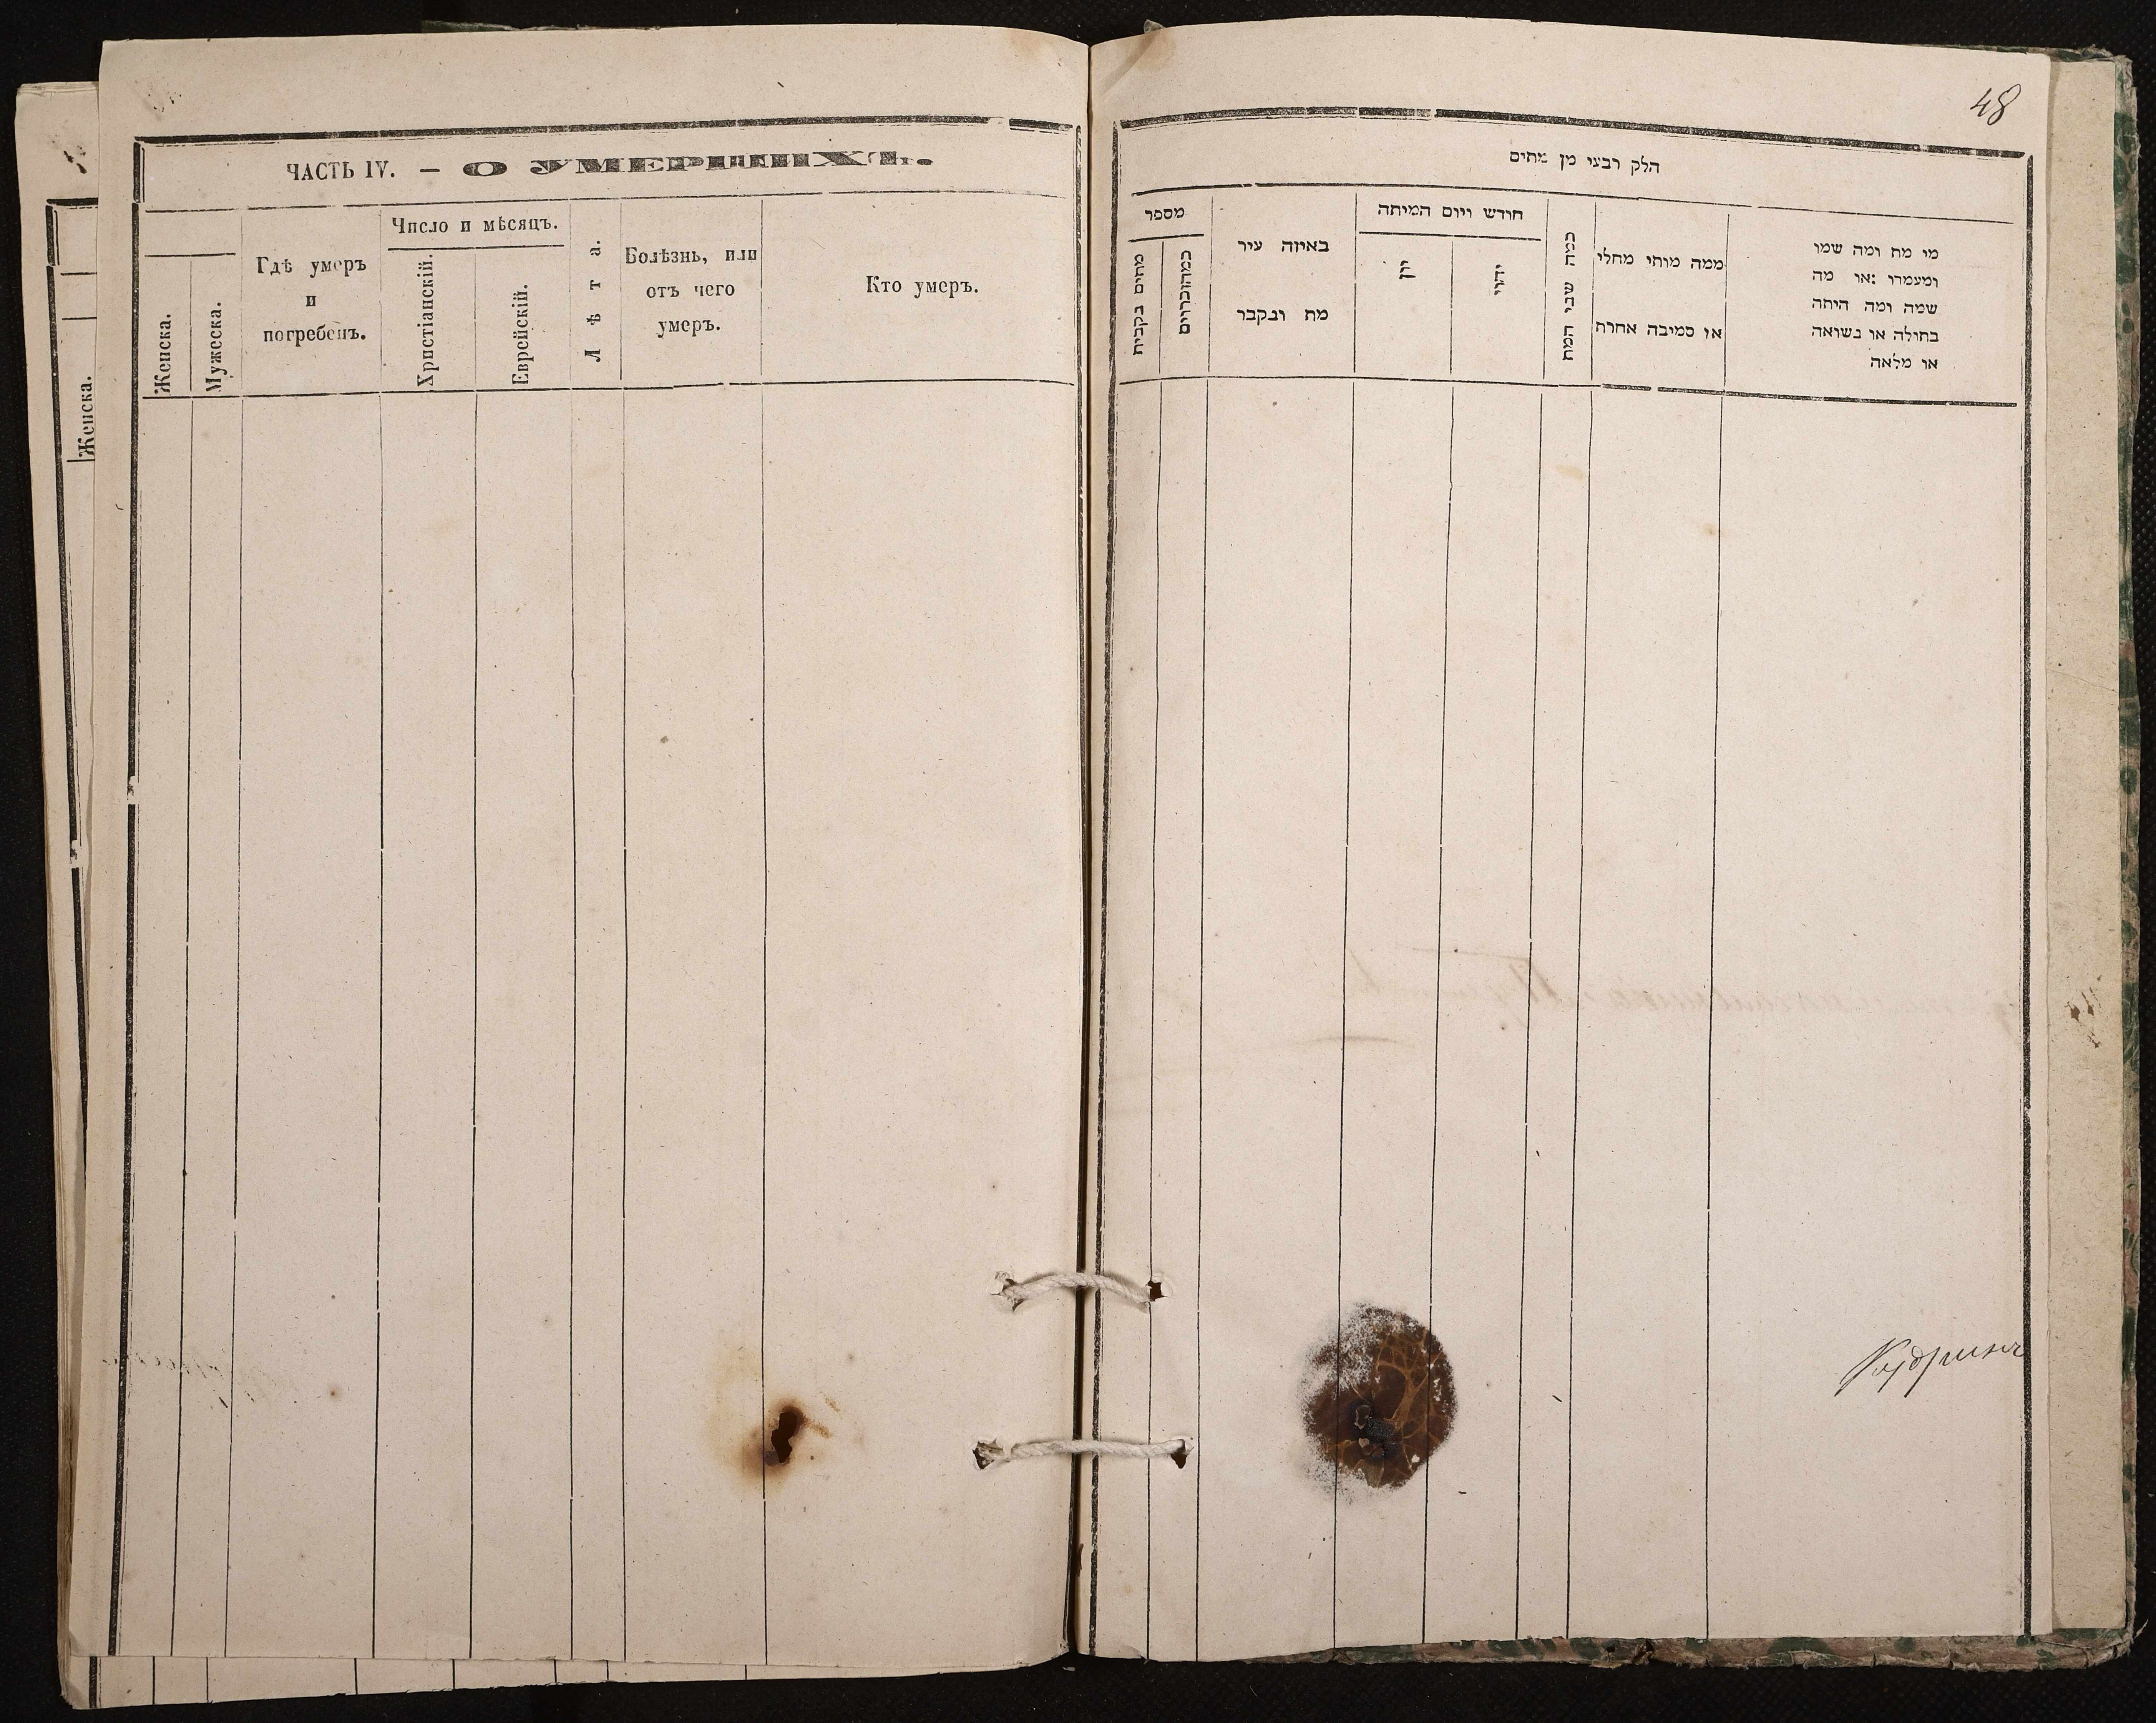 Женска.
ЧАСТЬ IV. — О УМЕРШИХЪ.
Женска.
Мужеска.
Гдѣ умеръ
и
погребенъ.
Число и мѣсяцъ.
Христіанскій.
Еврейскій.
Лѣта.
Болѣзнь, или
отъ чего
умеръ.
Кто умеръ.
48
הלק רבעי מן מתים
מספר
באיזה עיר
מת ונקבר
חודש ויום המיתה
יון
יהודי
כמה שני המת
ממה מותי מחלי
או סמיבה אחרת
מי מת ומה שמו
ומעמדו :או מה
שמה ומה היתה
בתולה או נשואה
או מלאה
Кудринъ